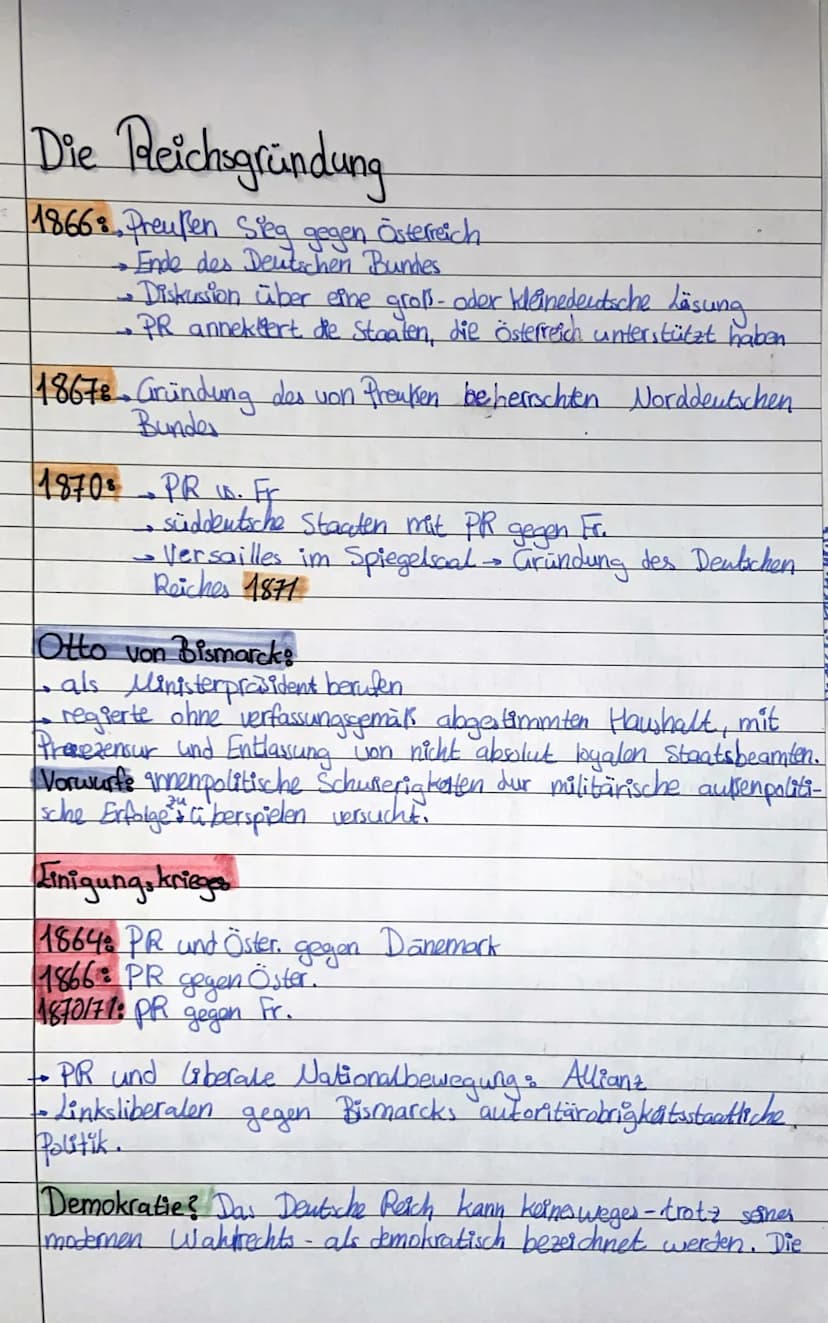 Die Reichsgründung
1866: → Preußen Sieg gegen Österreich
→ Ende des Deutschen Bundes
→ Diskussion über eine groß- oder kleinedeutsche Lösung
→ PR annektiert die Staaten, die Österreich unterstützt haben
1867: → Gründung des von Preußen beherrschten Norddeutschen
Bundes
1870: → PR vs. Fr
→ süddeutsche Staaten mit PR gegen Fr.
→ Versailles im Spiegelsaal → Gründung des Deutschen
Reiches 1871
Otto von Bismarck:
→ als Ministerpräsident berufen
→ regierte ohne verfassungsgemäß abgestimmten Haushalt, mit
und Entlassung von nicht absolut loyalen Staatsbeamten.
Vorwurf: innenpolitische durch militärische außenpoliti-
sche Erfolge zu überspielen versucht.
Einigungskriege:
1864: PR und Öster. gegen Dänemark
1866: PR gegen Öster.
1870/71: PR gegen Fr.
→ PR und liberale Nationalbewegung: Allianz
→ Linksliberalen gegen Bismarcks autoritärobrigkeitsstaatliche
Politik.
Demokratie? Das Deutsche Reich kann keineswegs - trotz seines
modernen Wahlrechts - als demokratisch bezeichnet werden. Die